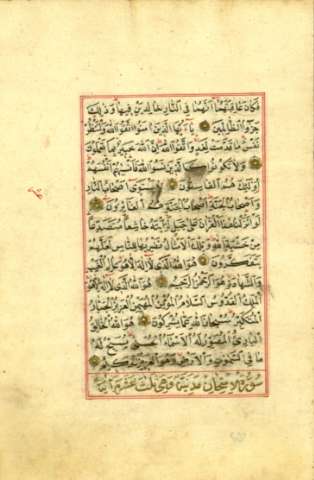 فكان عاقبتهما أنهما في النار خالدين فيها وذلك
جزؤا الظالمين يا أيها الذين آمنوا اتقوا الله ولتنظر
نفس ما قدمت لغد واتقوا الله إن الله خبير بما تعملون
ولا تكونوا كالذين نسوا الله فأنسيهم أنفسهم
أولئك هم الفاسقون لا يستوي أصحاب النار
وأصحاب الجنة أصحاب الجنة هم الفائزون
لو أنزلنا هذا القرآن على جبل لرأيته خاشعا متصدعا
من خشية الله وتلك الأمثال نضربها للناس لعلهم
يتفكرون هو الله الذي لا إله إلا هو عالم الغيب
والشهادة هو الرحمن الرحيم هو الله الذي لا إله إلا هو
الملك القدوس السلام المؤمن المهيمن العزيز الجبار
المتكبر سبحان الله عما يشركون هو الله الخالق
البارئ المصور له الأسماء الحسنى يسبح له
ما في السموات والأرض وهو العزيز الحكيم
سورة الامتحان مدنية وهي ثلث عشرة آية